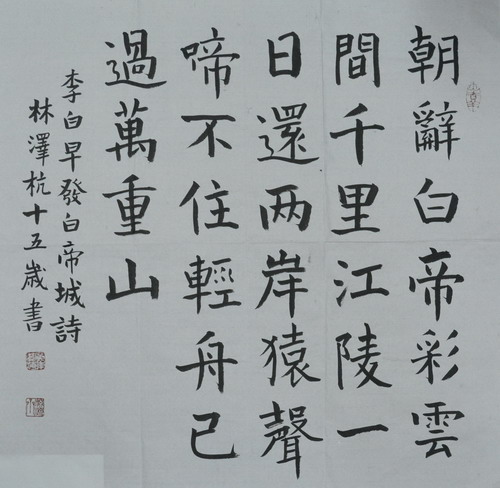 朝辭白帝彩雲
間千里江陵一
日還两岸猿聲
啼不住輕舟已
過萬重山
李白早發白帝城詩
林澤杭十五歲書